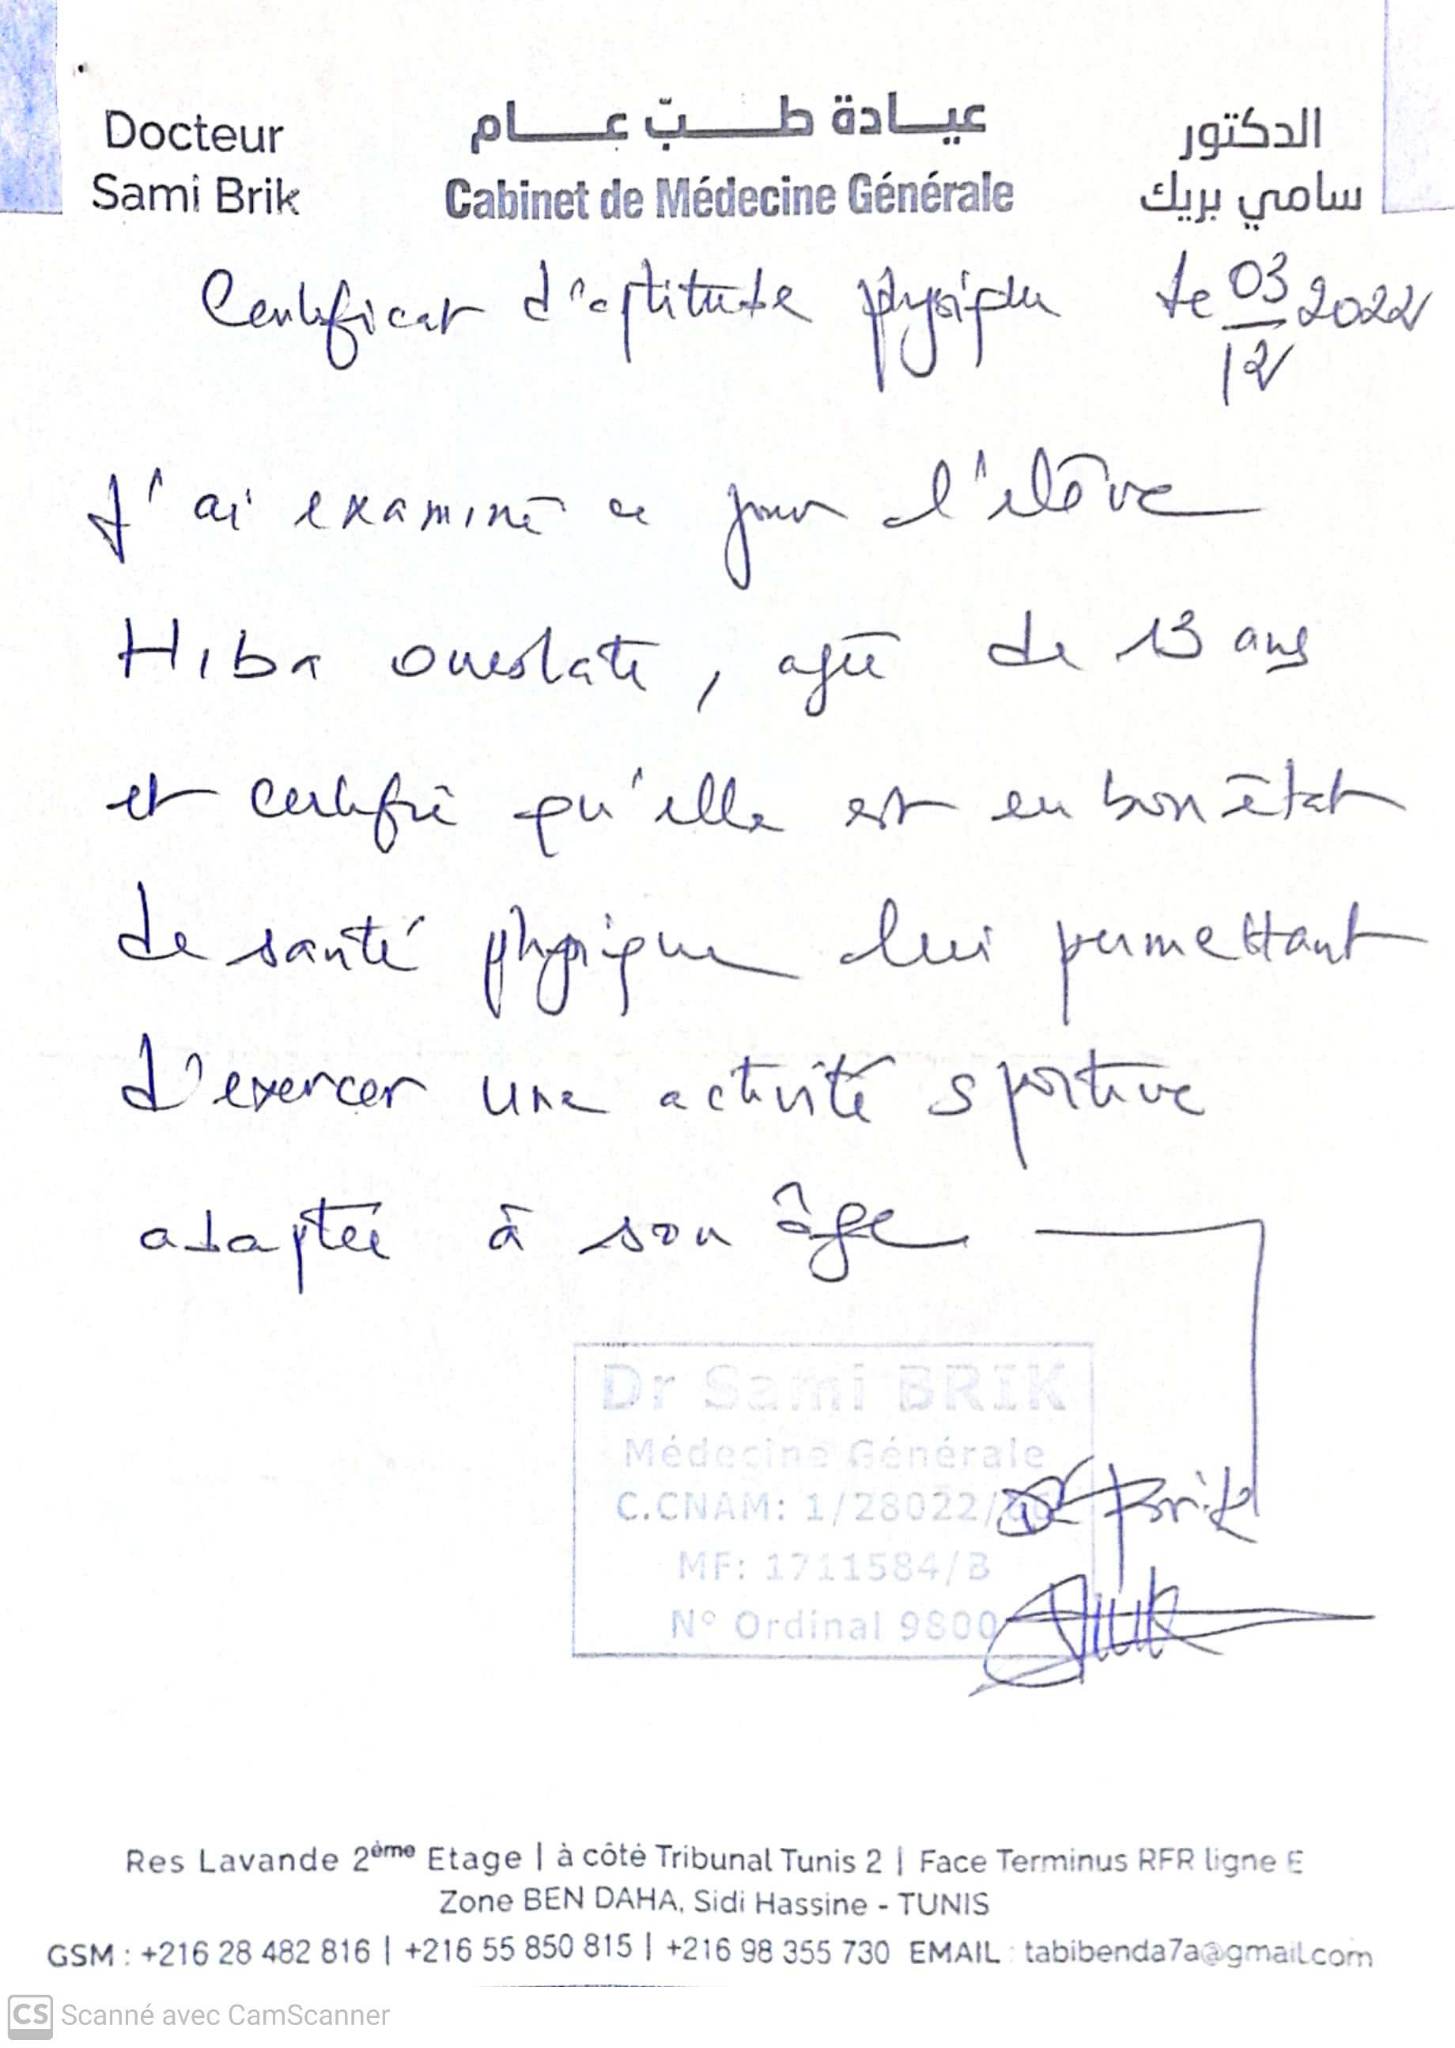 Docteur
Sami Brik
عيادة طبّ عام
Cabinet de Médecine Générale
الدكتور
سامي بريك
Certificat d'aptitude physique le 03/12 2022
J'ai examiné ce jour l'élève
Hiba oueslati, agée de 13 ans
et certifie qu'elle est en bon état
de santé physique lui permettant
d'exercer une activité sportive
adaptée à son âge
Dr Sami BRIK
Médecine Générale
C.CNAM: 1/28022/
MF: 1711584/B
N° Ordinal 9800
Dr Brik
Res Lavande 2ème Etage | à côté Tribunal Tunis 2 | Face Terminus RFR ligne E
Zone BEN DAHA, Sidi Hassine - TUNIS
GSM : +216 28 482 816 | +216 55 850 815 | +216 98 355 730 EMAIL : tabibenda7a@gmail.com
CS Scanné avec CamScanner